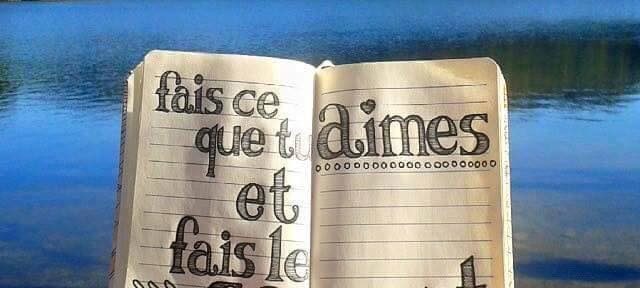 fais ce
que tu
aimes
et
fais le